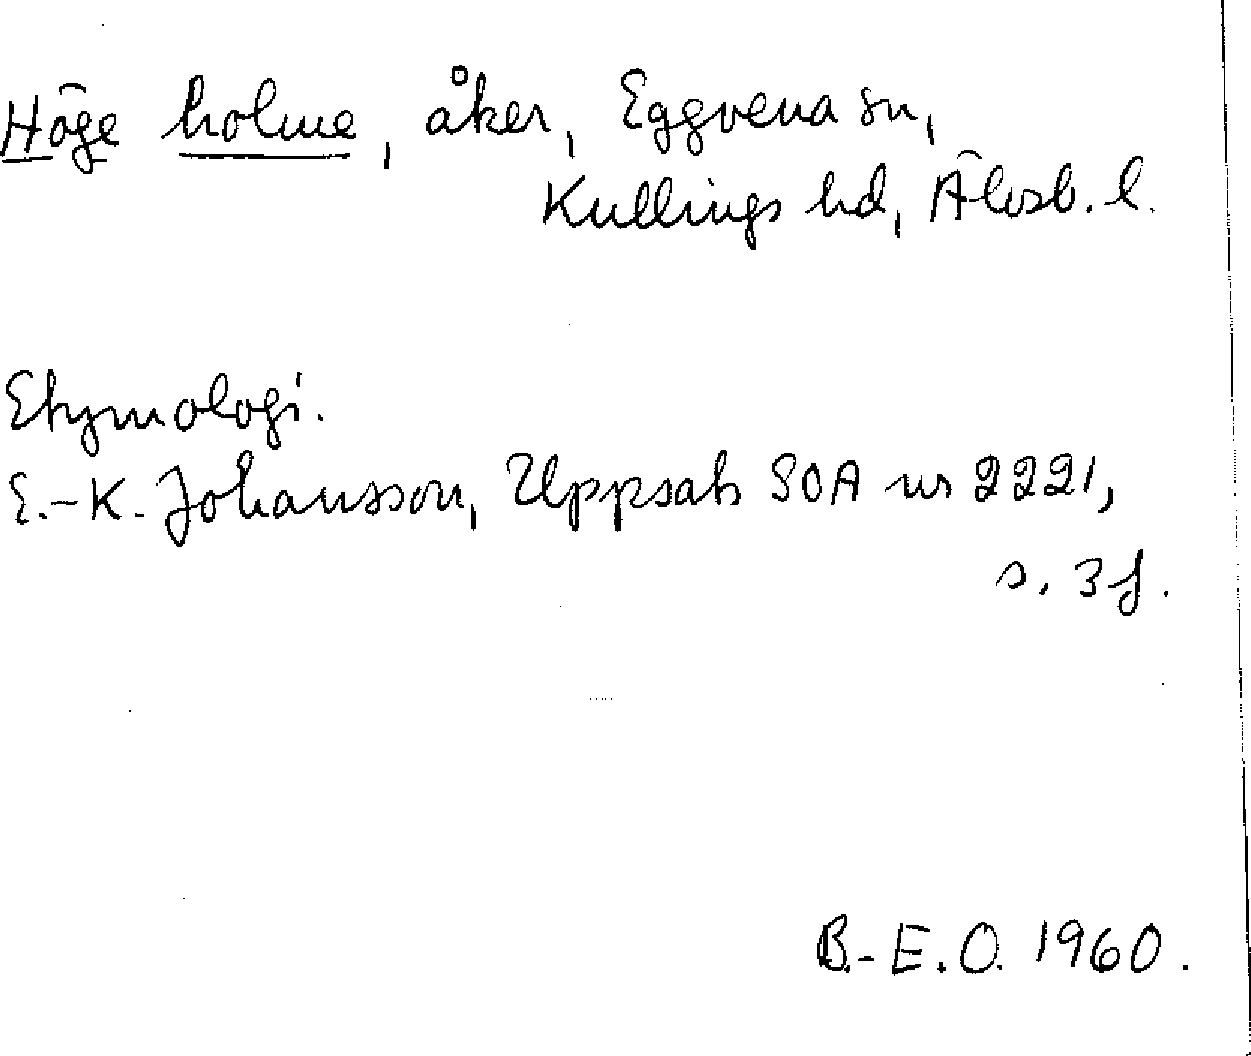 Höge holme, åker, Eggvena sn,
Kullings hd, Älvsb. l.
Etymologi.
E.-K. Johansson, Uppsats SOA nr 2221,
s. 3 f.
B.-E.O. 1960.